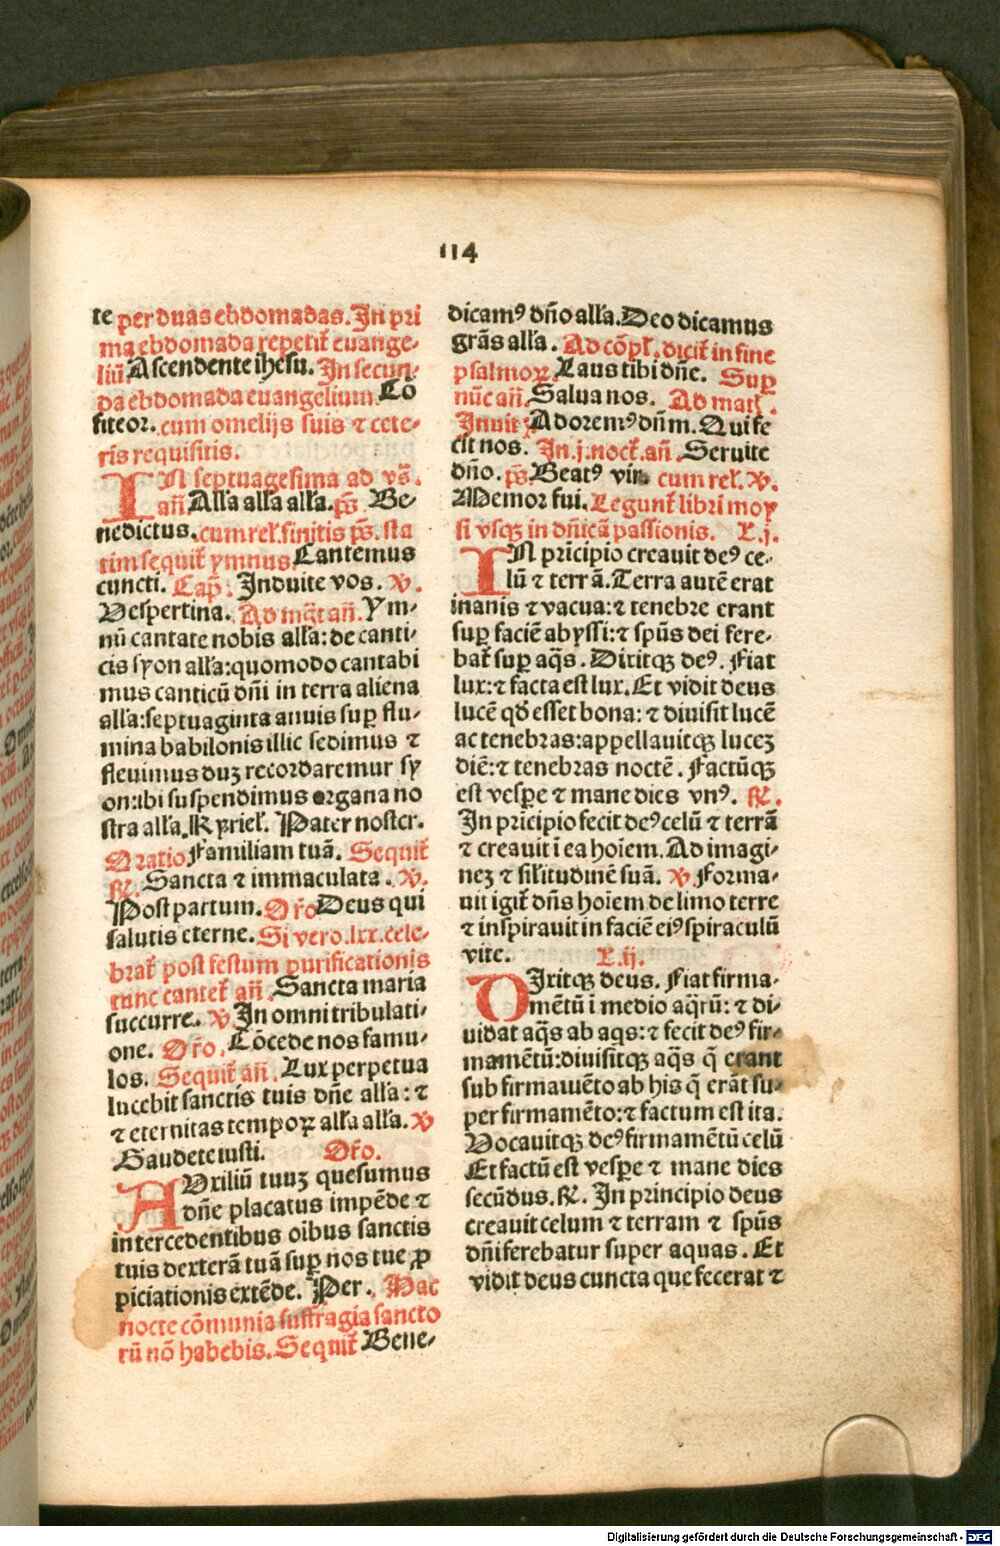 114
te per duas ebdomadas. In pri
ma ebdomada repetit᷑ euange-
liū Ascendente ihesu. In secun-
da ebdomada euangelium Cō
fiteor. cum omelijs suis ⁊ cete-
ris requisitis.
IN septuagesima ad vs̄.
an̄ Alľa alľa alľa. ps̄ Be-
nedictus. cum rel᷑. finitis ps̄. sta
tim sequit᷑ ymnus Cantemus
cuncti. Cap̄. Induite vos. ℣.
Vespertina. Ad mąt an̄. Ym-
nū cantate nobis alľa: de canti-
cis syon alľa: quomodo cantabi
mus canticū dn̄i in terra aliena
alľa: septuaginta annis suꝑ flu-
mina babilonis illic sedimus ⁊
fleuimus duꝫ recordaremur sy
on: ibi suspendimus organa no
stra alľa. Kyriel᷑. Pater noster.
Oratio Familiam tuā. Sequit᷑
℟. Sancta ⁊ immaculata. ℣.
Post partum. Or̄o Deus qui
salutis eterne. Si vero .lxx. cele-
brat᷑ post festum purificationis
tunc cantet᷑ an̄. Sancta maria
succurre. ℣. In omni tribulati-
one. Or̄o. Cōcede nos famu-
los. Sequit᷑ an̄. Lux perpetua
lucebit sanctis tuis dn̄e alľa: ⁊
⁊ eternitas tempoꝝ alľa alľa. ℣
Gaudete iusti. Or̄o.
AUxiliū tuuꝫ quesumus
dn̄e placatus impēde ⁊
intercedentibus oībus sanctis
tuis dexterā tuā suꝑ nos tue ꝓ
piciationis extēde. Per. Hac
nocte cōmunia suffragia sancto
rū nō habebis. Sequit᷑ Bene-
dicamꝰ dn̄o alľa. Deo dicamus
grās alľa. Ad cōpl᷑. dicit᷑ in fine
psalmoꝝ. Laus tibi dn̄e. Suꝑ
nūc an̄. Salua nos. Ad mat᷑.
Inuit᷑ Adoremꝰ dn̄m. Qui fe
cit nos. In .j. noct᷑. an̄. Seruite
dn̄o. ps̄. Beatꝰ vir. cum rel᷑. ℣.
Memor fui. Legunt᷑ libri moy
si vsqꝫ in dn̄icā passionis. L.j.
IN prīcipio creauit deꝰ ce-
lū ⁊ terrā. Terra autē erat
inanis ⁊ vacua: ⁊ tenebre erant
suꝑ faciē abyssi: ⁊ sp̄us dei fere-
bat᷑ suꝑ aq̄s. Dixitqꝫ deꝰ. Fiat
lux: ⁊ facta est lux. Et vidit deus
lucē qđ esset bona: ⁊ diuisit lucē
ac tenebras: appellauitqꝫ luceꝫ
diē: ⁊ tenebras noctē. Factūqꝫ
est vesꝑe ⁊ mane dies vnꝰ. ℟.
In prīcipio fecit deꝰ celū ⁊ terrā
⁊ creauit ī ea hoīem. Ad imagi-
neꝫ ⁊ sil᷑itudinē suā. ℣. Forma-
uit igit᷑ dn̄s hoīem de limo terre
⁊ inspirauit in faciē eiꝰ spiraculū
vite. L.ij.
DIxitqꝫ deus. Fiat firma-
mētū ī medio aq̄rū: ⁊ di-
uidat aq̄s ab aqs: ⁊ fecit deꝰ fir-
mamētū: diuisitqꝫ aq̄s q̄ erant
sub firmamēto ab his q̄ erāt su-
per firmamēto: ⁊ factum est ita.
Vocauitqꝫ deꝰ firmamētū celū
Et factū est vesꝑe ⁊ mane dies
secūdus. ℟. In principio deus
creauit celum ⁊ terram ⁊ sp̄us
dn̄i ferebatur super aquas. Et
vidit deus cuncta que fecerat ⁊
Digitalisierung gefördert durch die Deutsche Forschungsgemeinschaft - DFG